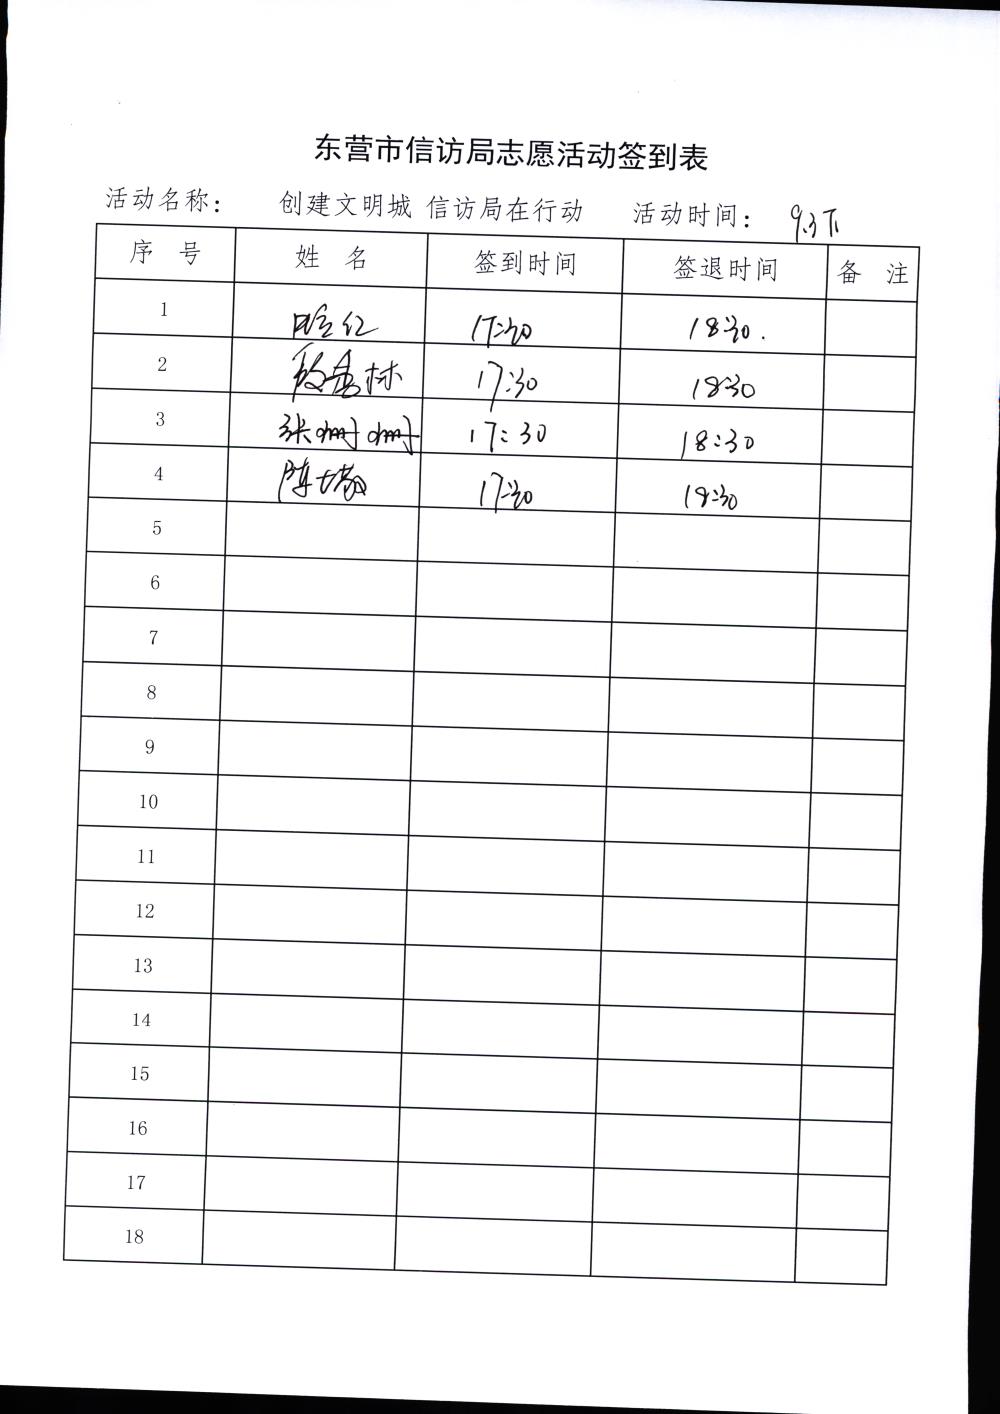 东营市信访局志愿活动签到表
活动名称： 创建文明城 信访局在行动 活动时间： 9.3下
序 号 姓 名 签到时间 签退时间 备 注
1 17:30 18:30.
2 林 17:30 18:30
3 张珊珊 17:30 18:30
4 陈 17:30 18:30
5
6
7
8
9
10
11
12
13
14
15
16
17
18